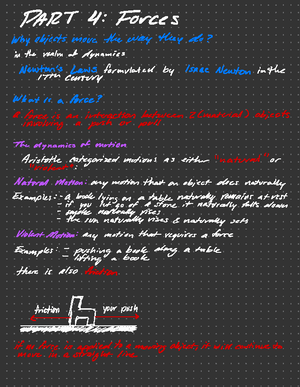 PART 4: Forces
Why objects move the way they do?
is the realm of dynamics
Newton's Laws formulated by Isaac Newton in the
17th century
What is a Force?
A Force is an interaction between 2 (material) objects
involving a push or pull
The dynamics of motion
Aristotle categorized motions as either "natural" or
"violent"
Natural Motion: any motion that an object does naturally
Examples: - a book lying on a table naturally remains at rest
- if you let go of a stone it naturally falls down
- smoke naturally rises
- the sun naturally rises & naturally sets
Violent Motion: any motion that requires a force
Examples: - pushing a book along a table
- lifting a book
there is also friction
friction
your push
If no force is applied to a moving object, it will continue to
move in a straight line